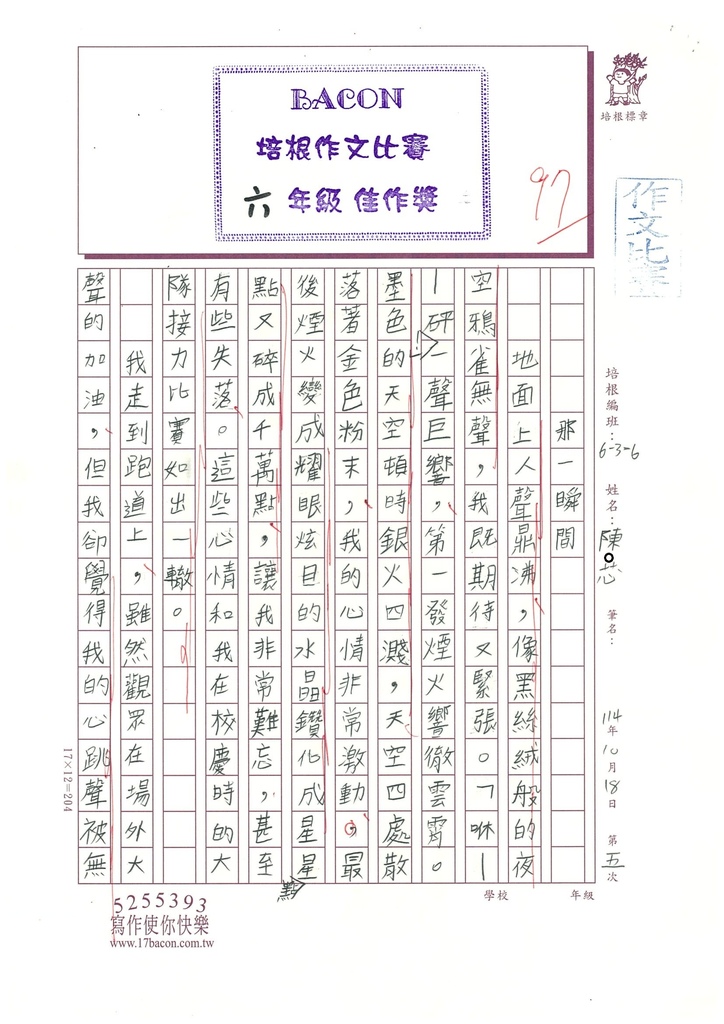 BACON
培根作文比賽
六年級 佳作獎
97
培根標章
作文比賽
培根編班：6-3-6 姓名：陳芯 筆名： 114年10月18日 第五次
學校 年級
那一瞬間
地面上人聲鼎沸，像黑絲絨般的夜
空鴉雀無聲，我既期待又緊張。「咻—
—砰一聲巨響，第一發煙火響徹雲霄。
墨色的天空頓時銀火四濺，天空四處散
落著金色粉末，我的心情非常激動，最
後煙火變成耀眼炫目的水晶鑽化成星星
點點又碎成千萬點，讓我非常難忘，甚至
有些失落。這些心情和我在校慶時的大
隊接力比賽如出一轍。
我走到跑道上，雖然觀眾在場外大
聲的加油，但我卻覺得我的心跳聲被無
17×12=204
5255393
寫作使你快樂
www.17bacon.com.tw